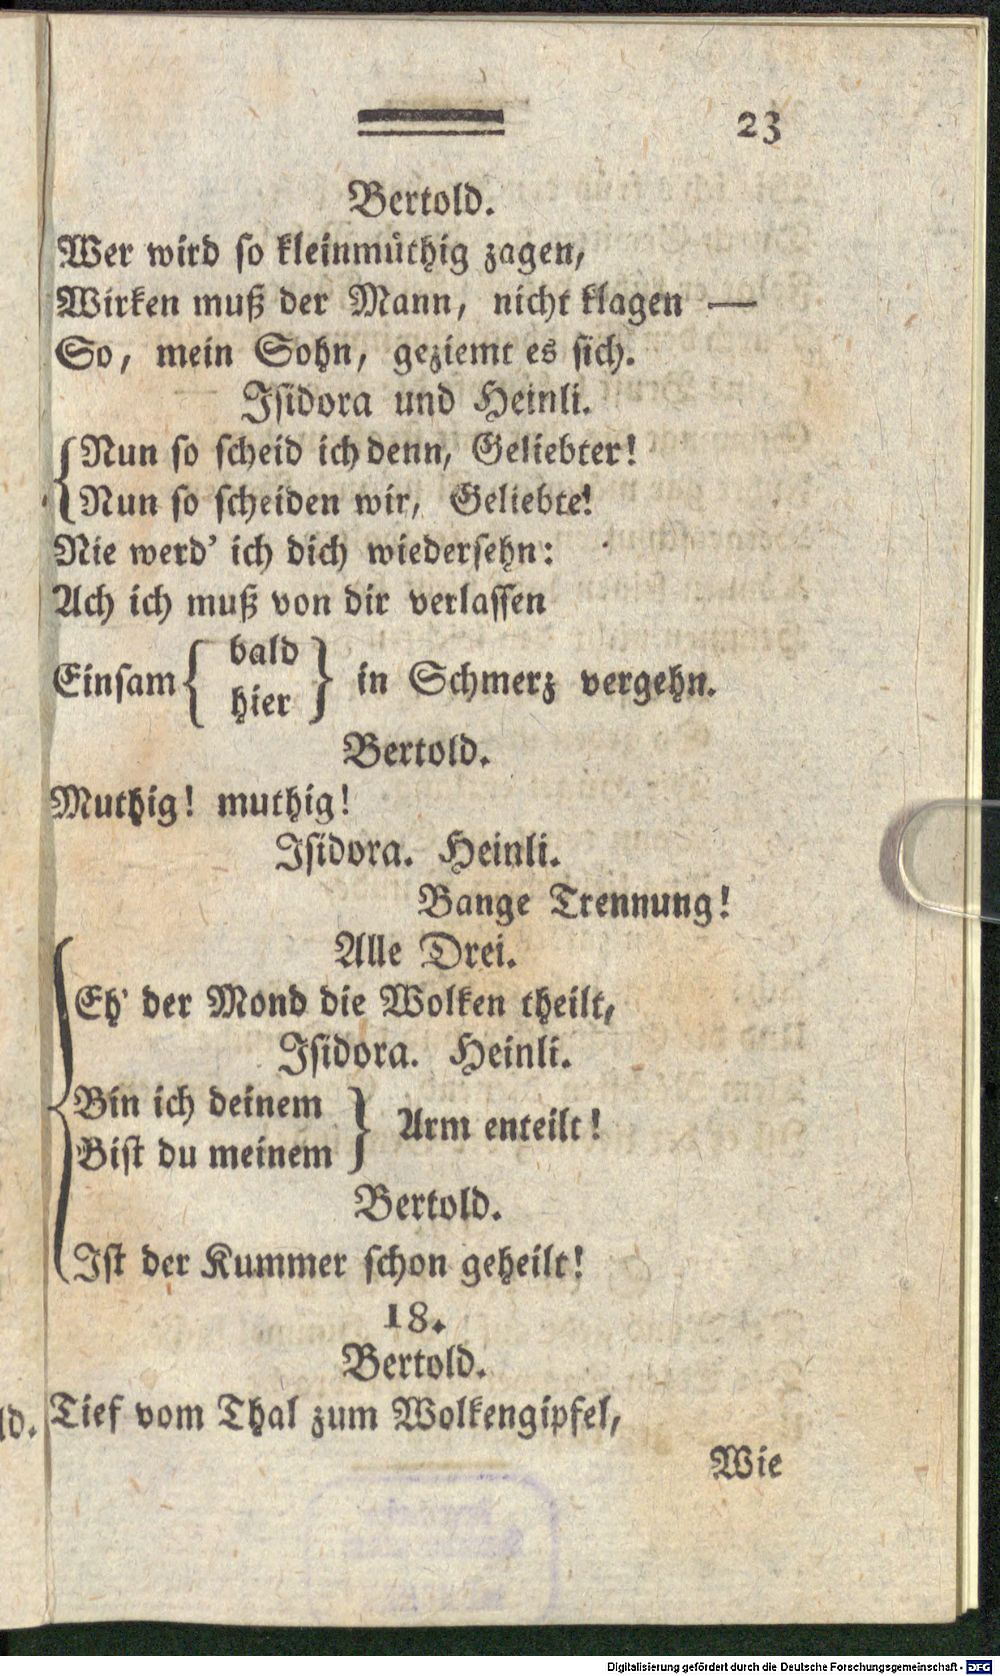 23
Bertold.
Wer wird so kleinmüthig zagen,
Wirken muß der Mann, nicht klagen —
So, mein Sohn, geziemt es sich.
Isidora und Heinli.
Nun so scheid ich denn, Geliebter!
Nun so scheiden wir, Geliebte!
Nie werd' ich dich wiedersehn:
Ach ich muß von dir verlassen
Einsam { bald
hier } in Schmerz vergehn.
Bertold.
Muthig! muthig!
Isidora. Heinli.
Bange Trennung!
Alle Drei.
Eh' der Mond die Wolken theilt,
Isidora. Heinli.
Bin ich deinem
Bist du meinem } Arm enteilt!
Bertold.
Ist der Kummer schon geheilt!
18.
Bertold.
ld. Tief vom Thal zum Wolkengipfel,
Wie
Digitalisierung gefördert durch die Deutsche Forschungsgemeinschaft - DFG